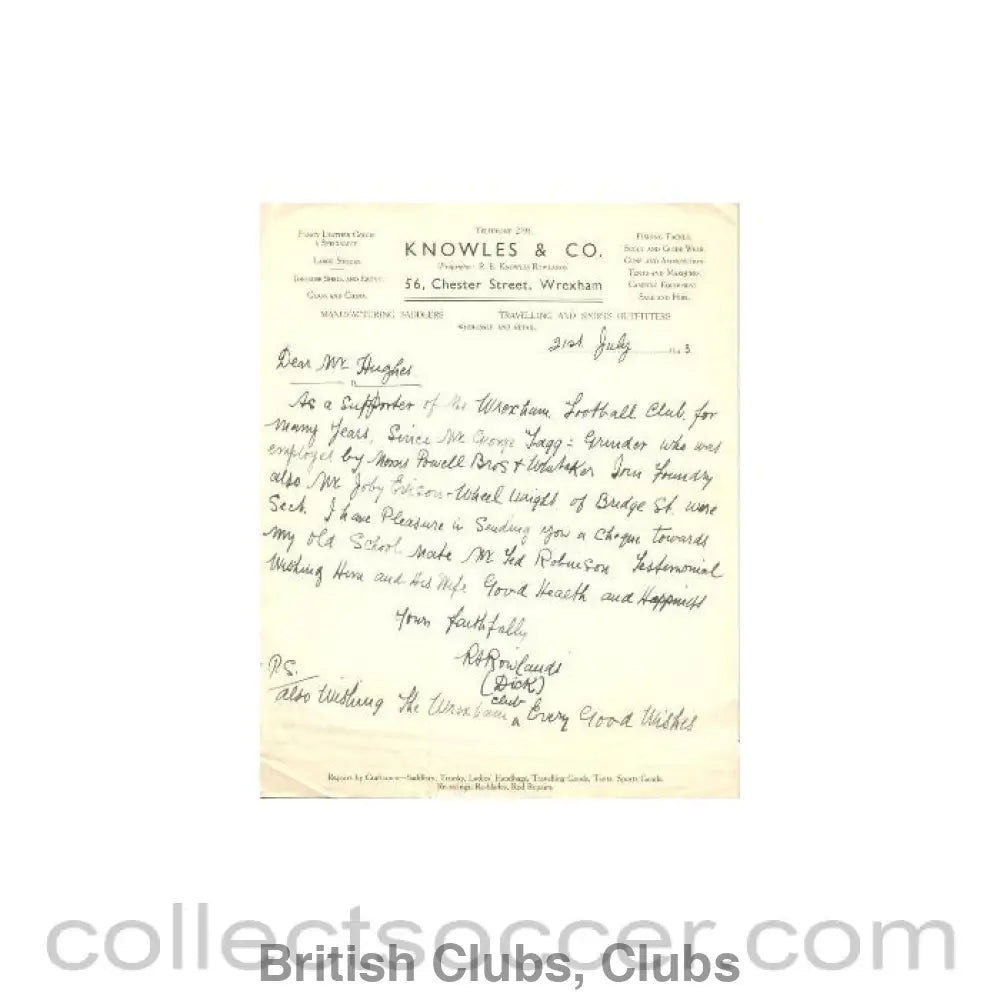 TELEPHONE
KNOWLES & CO.
R. E. KNOWLES ROWLANDS
56, Chester Street, Wrexham
FANCY LEATHER GOODS
A SPECIALITY
LARGE STOCKS
GLASS AND CHINA
FISHING TACKLE
SCOUT AND GUIDE WEAR
GUNS AND AMMUNITION
TENTS AND MARQUEES
CAMPING EQUIPMENT
SALE AND HIRE
MANUFACTURING SADDLERS
TRAVELLING AND SPORTS OUTFITTERS
WHOLESALE AND RETAIL
21st July
Dear Mr Hughes
As a Supporter of the Wrexham Football Club for
many Years, Since Mr George Tagg = Grinder who was
employed by Powell Bros & Whitaker Iron Foundry
also Mr Joby - Wheel Wright of Bridge St. were
Sect. I have Pleasure in Sending you a Cheque towards
my old School Mate Mr Ted Robinson Testimonial
Wishing Him and His Wife Good Health and Happiness
Yours faithfully
Rowlands
(Dick)
P.S.
also Wishing The Wrexham club Every Good Wishes
Repairs by Craftsmen—Saddlery, Trunks, Ladies' Handbags, Travelling Goods, Tents, Sports Goods,
Re-blades, Rod Repairs
collectsoccer.com
British Clubs, Clubs